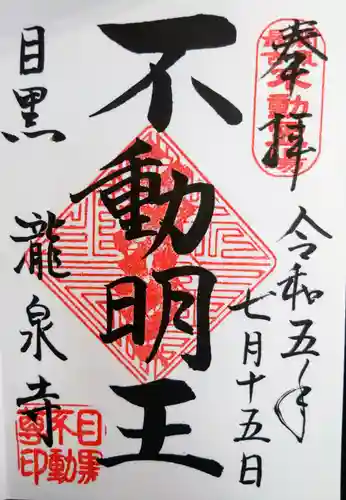 奉拝
令和五年
七月十五日
不動明王
目黒
瀧泉寺
目黒
不動
尊印